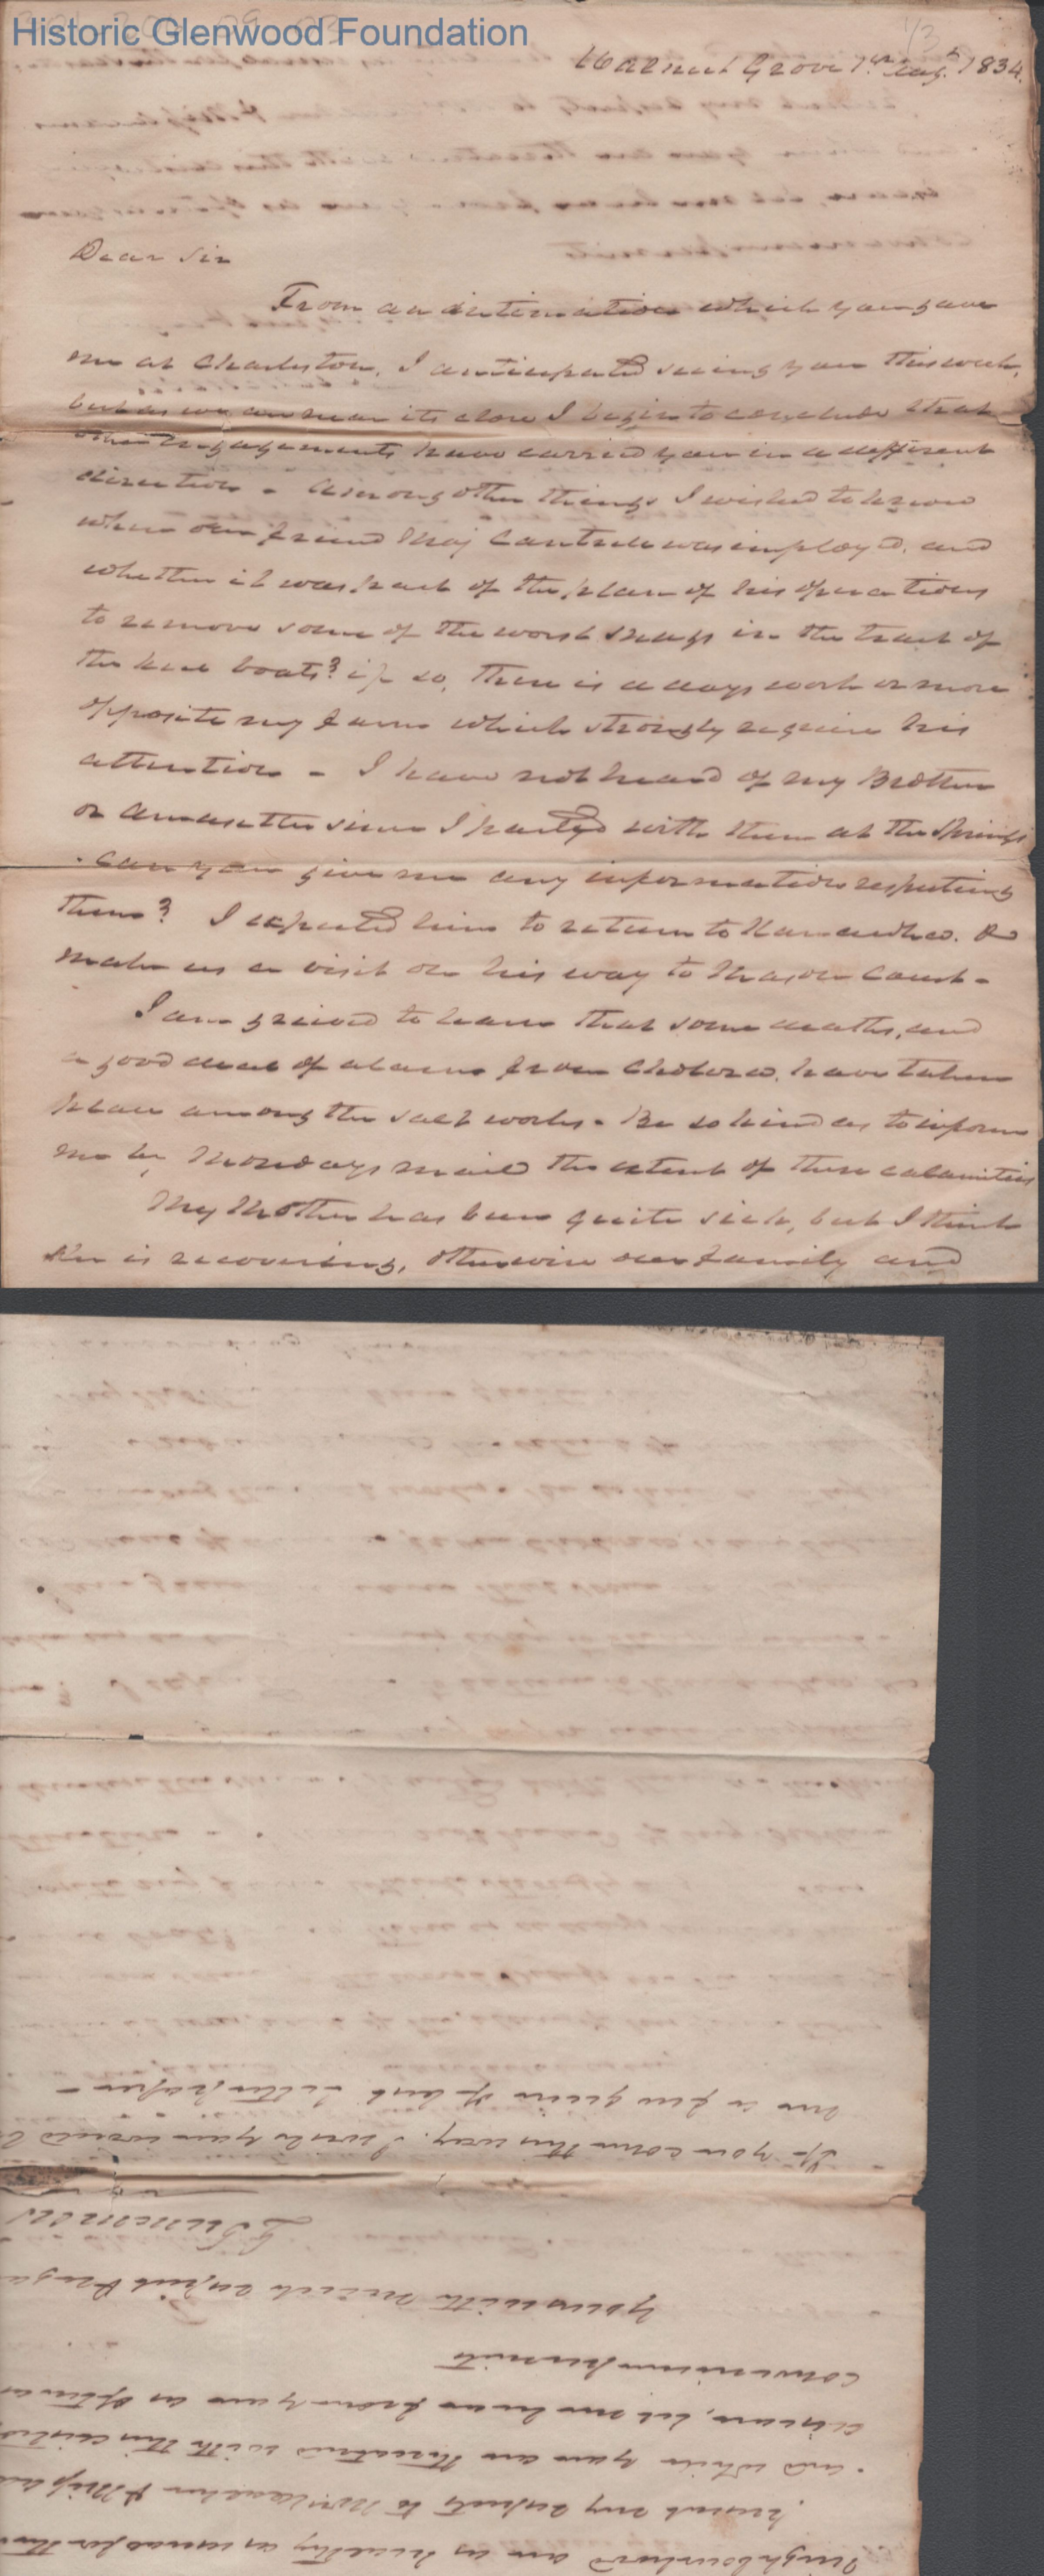 Historic Glenwood Foundation
1/3
Walnut Grove 1st Aug. 1834.
Dear Sir
From an intimation which you gave
me at Charleston, I anticipated seeing you this week,
but as we are near its close I begin to conclude that
other engagements have carried you in a different
direction - Among other things I wished to know
where our friend Maj Cantrell was employed, and
whether it was part of the plan of his operations
to remove some of the worst snags in the track of
the keel boats? if so, there is a days work or more
opposite my farm which strongly require his
attention - I have not heard of my Brother
or since I parted with them at the Springs
- Can you give me any information respecting
them? I expected him to return to Kanawha. &
make us a visit on his way to Mason Court -
I am grieved to learn that some deaths, and
a good deal of alarm from Cholera, have taken
place among the salt works. Be so kind as to inform
me by Mondays mail the extent of these calamities
My Mother has been quite sick, but I think
she is recovering, otherwise our family and
neighbourhood are as healthy as usual for the
present my respects to &
and while you are threatened with this
disease, let me hear from you as often as
convenience permits
Yours with much esteem
If you come this way. I wish you would
me a few quires of best letter paper -